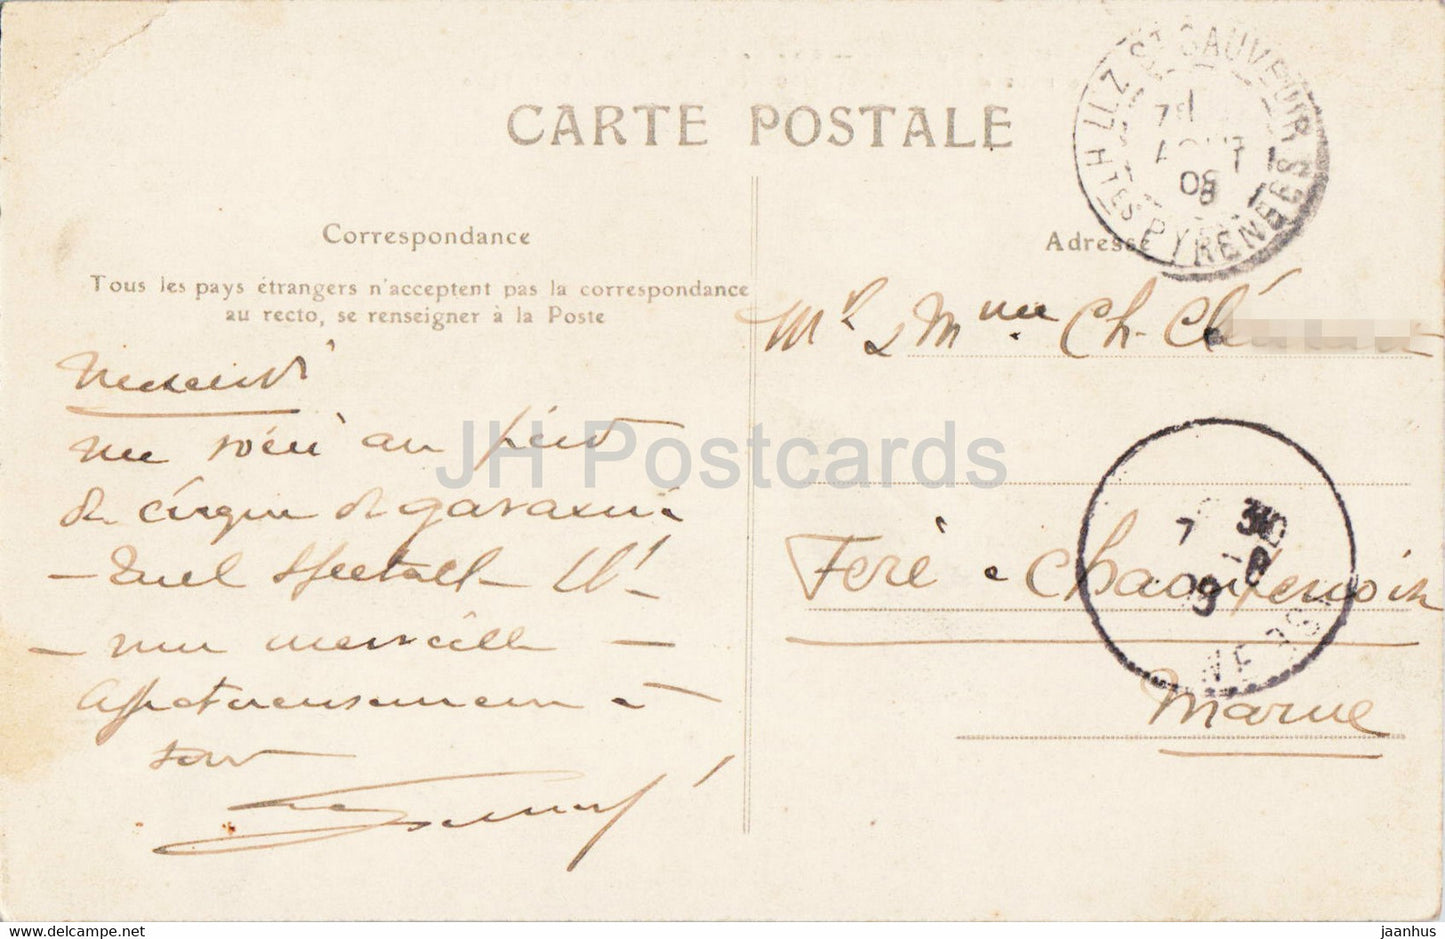 CARTE POSTALE
LUZ ST SAUVEUR
HTES PYRENEES
AOUT
08
Correspondance
Tous les pays étrangers n'acceptent pas la correspondance
au recto, se renseigner à la Poste
Mercredi
me voici au pied
du cirque de gavarnie
- Quel spectacle
- une merveille -
Affectueusement à
tous
Adresse
Mr & Mme Ch. Clé
Fère
Marne
JH Postcards
hippost.com
jaanhus